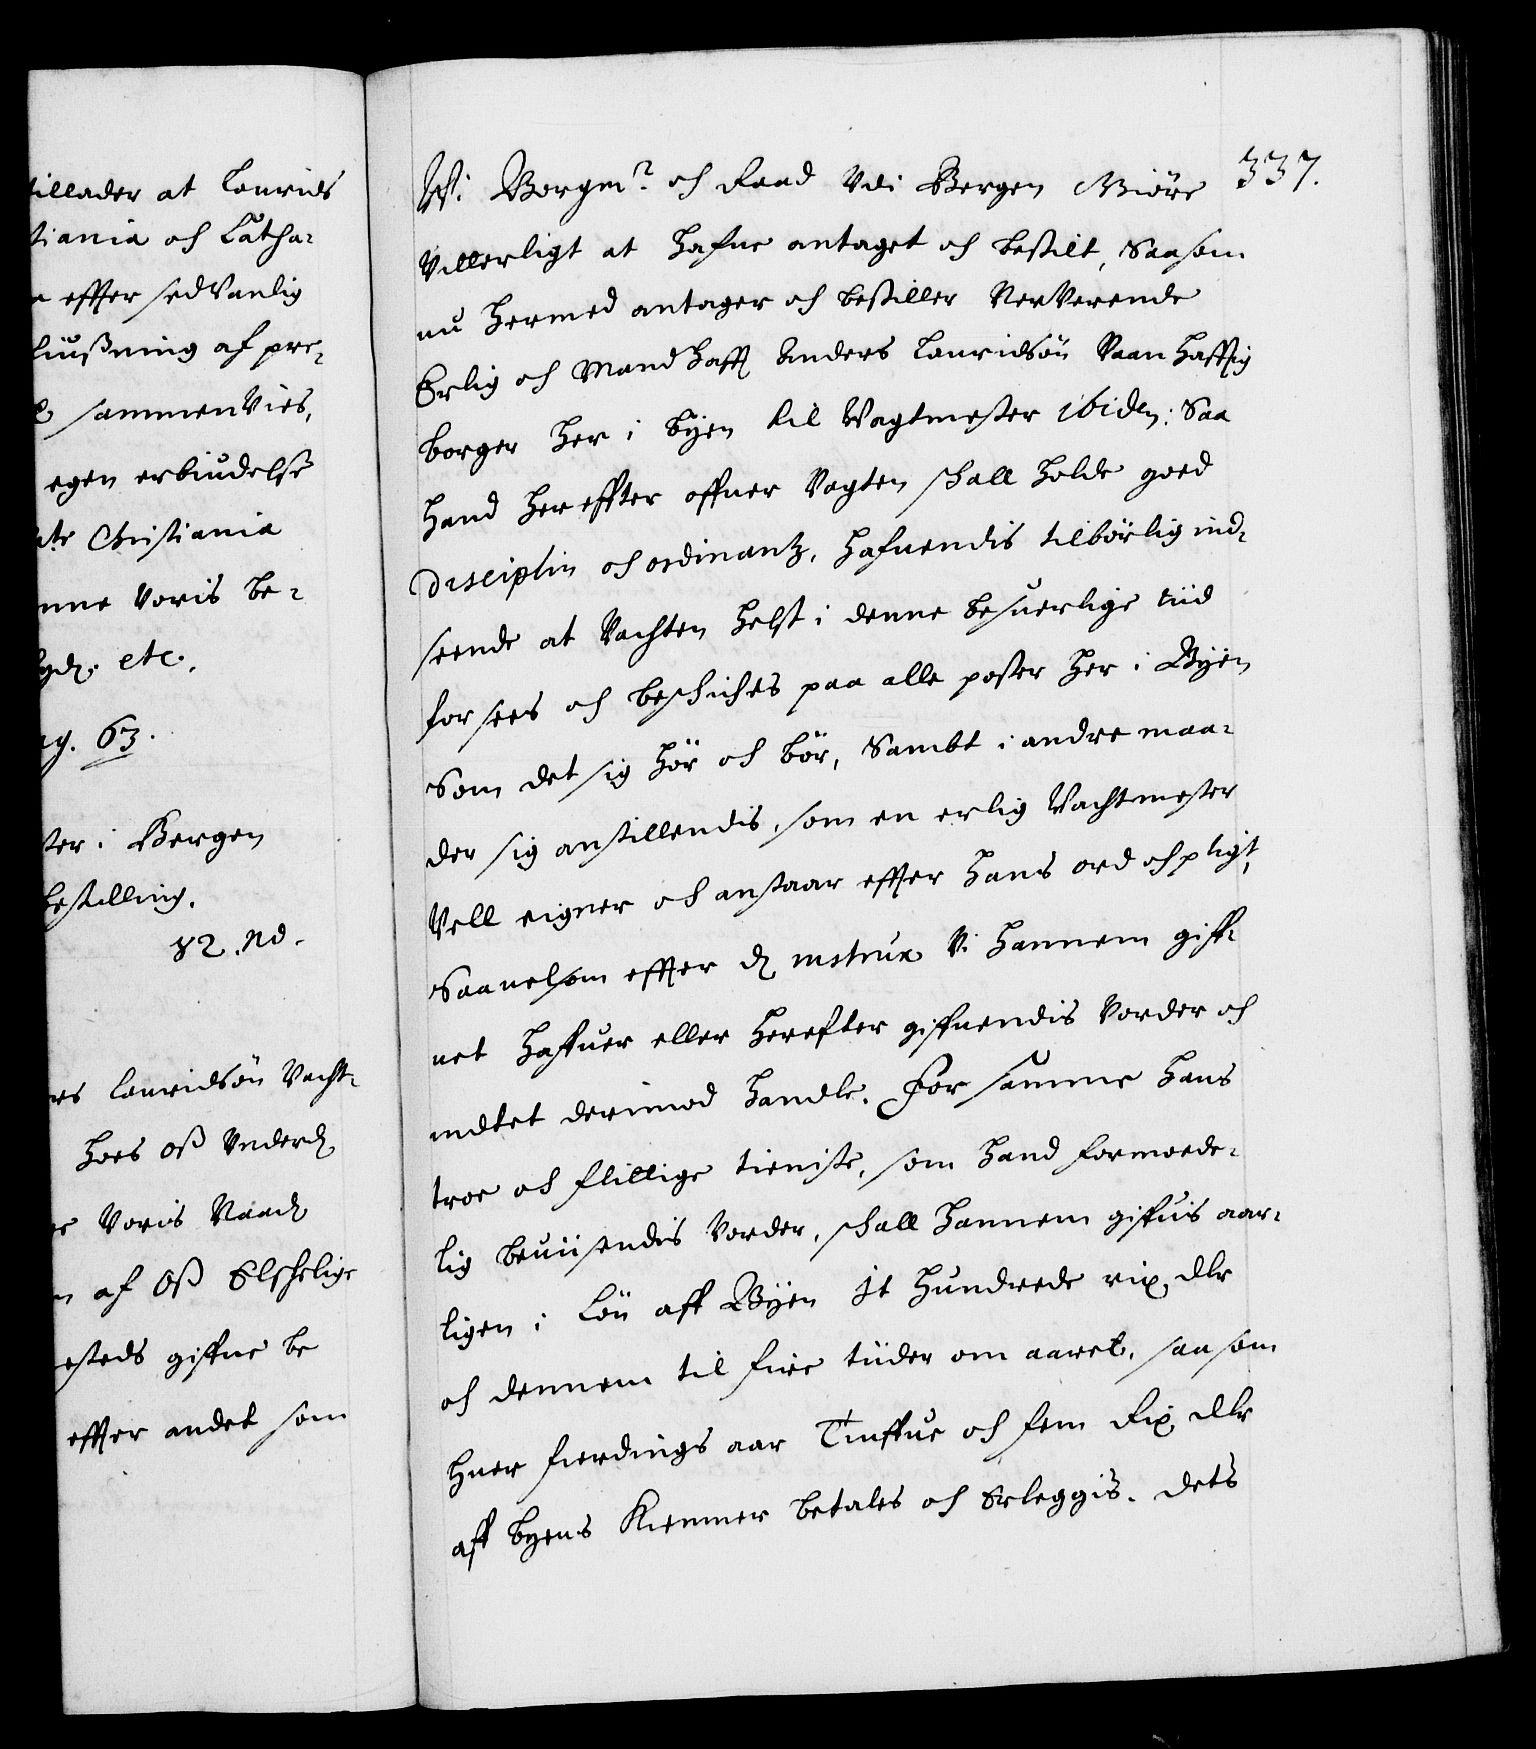 tillader at Laurids
tiania och Catha-
effter sedvanlig
liusning af pre-
sammenvies,
egen erbiudelse
Christiania
voris be-
etc.
63.
ter i Bergen
bestilling.
82. Nd.
Lauridsøn Vacht-
hoes oss
voris Naad
af Oss Elschelige
esteds giffne be
effter andet som
337.
Wi Borgmr. och Raad Vdi Bergen Giöre
Vitterligt at hafue antaget och bestilt, Saasom
nu hermed antager och bestiller Nerverende
Erlig och Mandhafft Anders Lauridsøn Vaanhafftig
borger her i byen til Vagtmester ibidem: Saa
hand hereffter offuer Vagten schall holde goed
Disciplin och ordinantz, hafuendis tilbörlig ind-
seende at Vachten helst i denne besuerlige tiid
forsees och beschichis paa alle poster her i Byen
Som det sig hör och bör, Sambt i andre maa-
der sig anstillendis, som en erlig Vachtmester
Vell eigner och anstaar effter hans ord och pligt,
Saauelsom effter d instrux Vi hannem giff-
uet haffuer eller herefter giffuendis Vorder och
indtet derimod handle. For samme hans
troe och flittige tieniste, som hand formoede-
lig beuiisendis Vorder, schall hannem giffuis aar-
ligen i Løn aff Byen It hundrede rix dlr
och dennem til fire tiider om aaret, saasom
huer fierdings aar Tiuffue och fem Rix dlr
aff byens Kiemner betales och Erleggis. dets